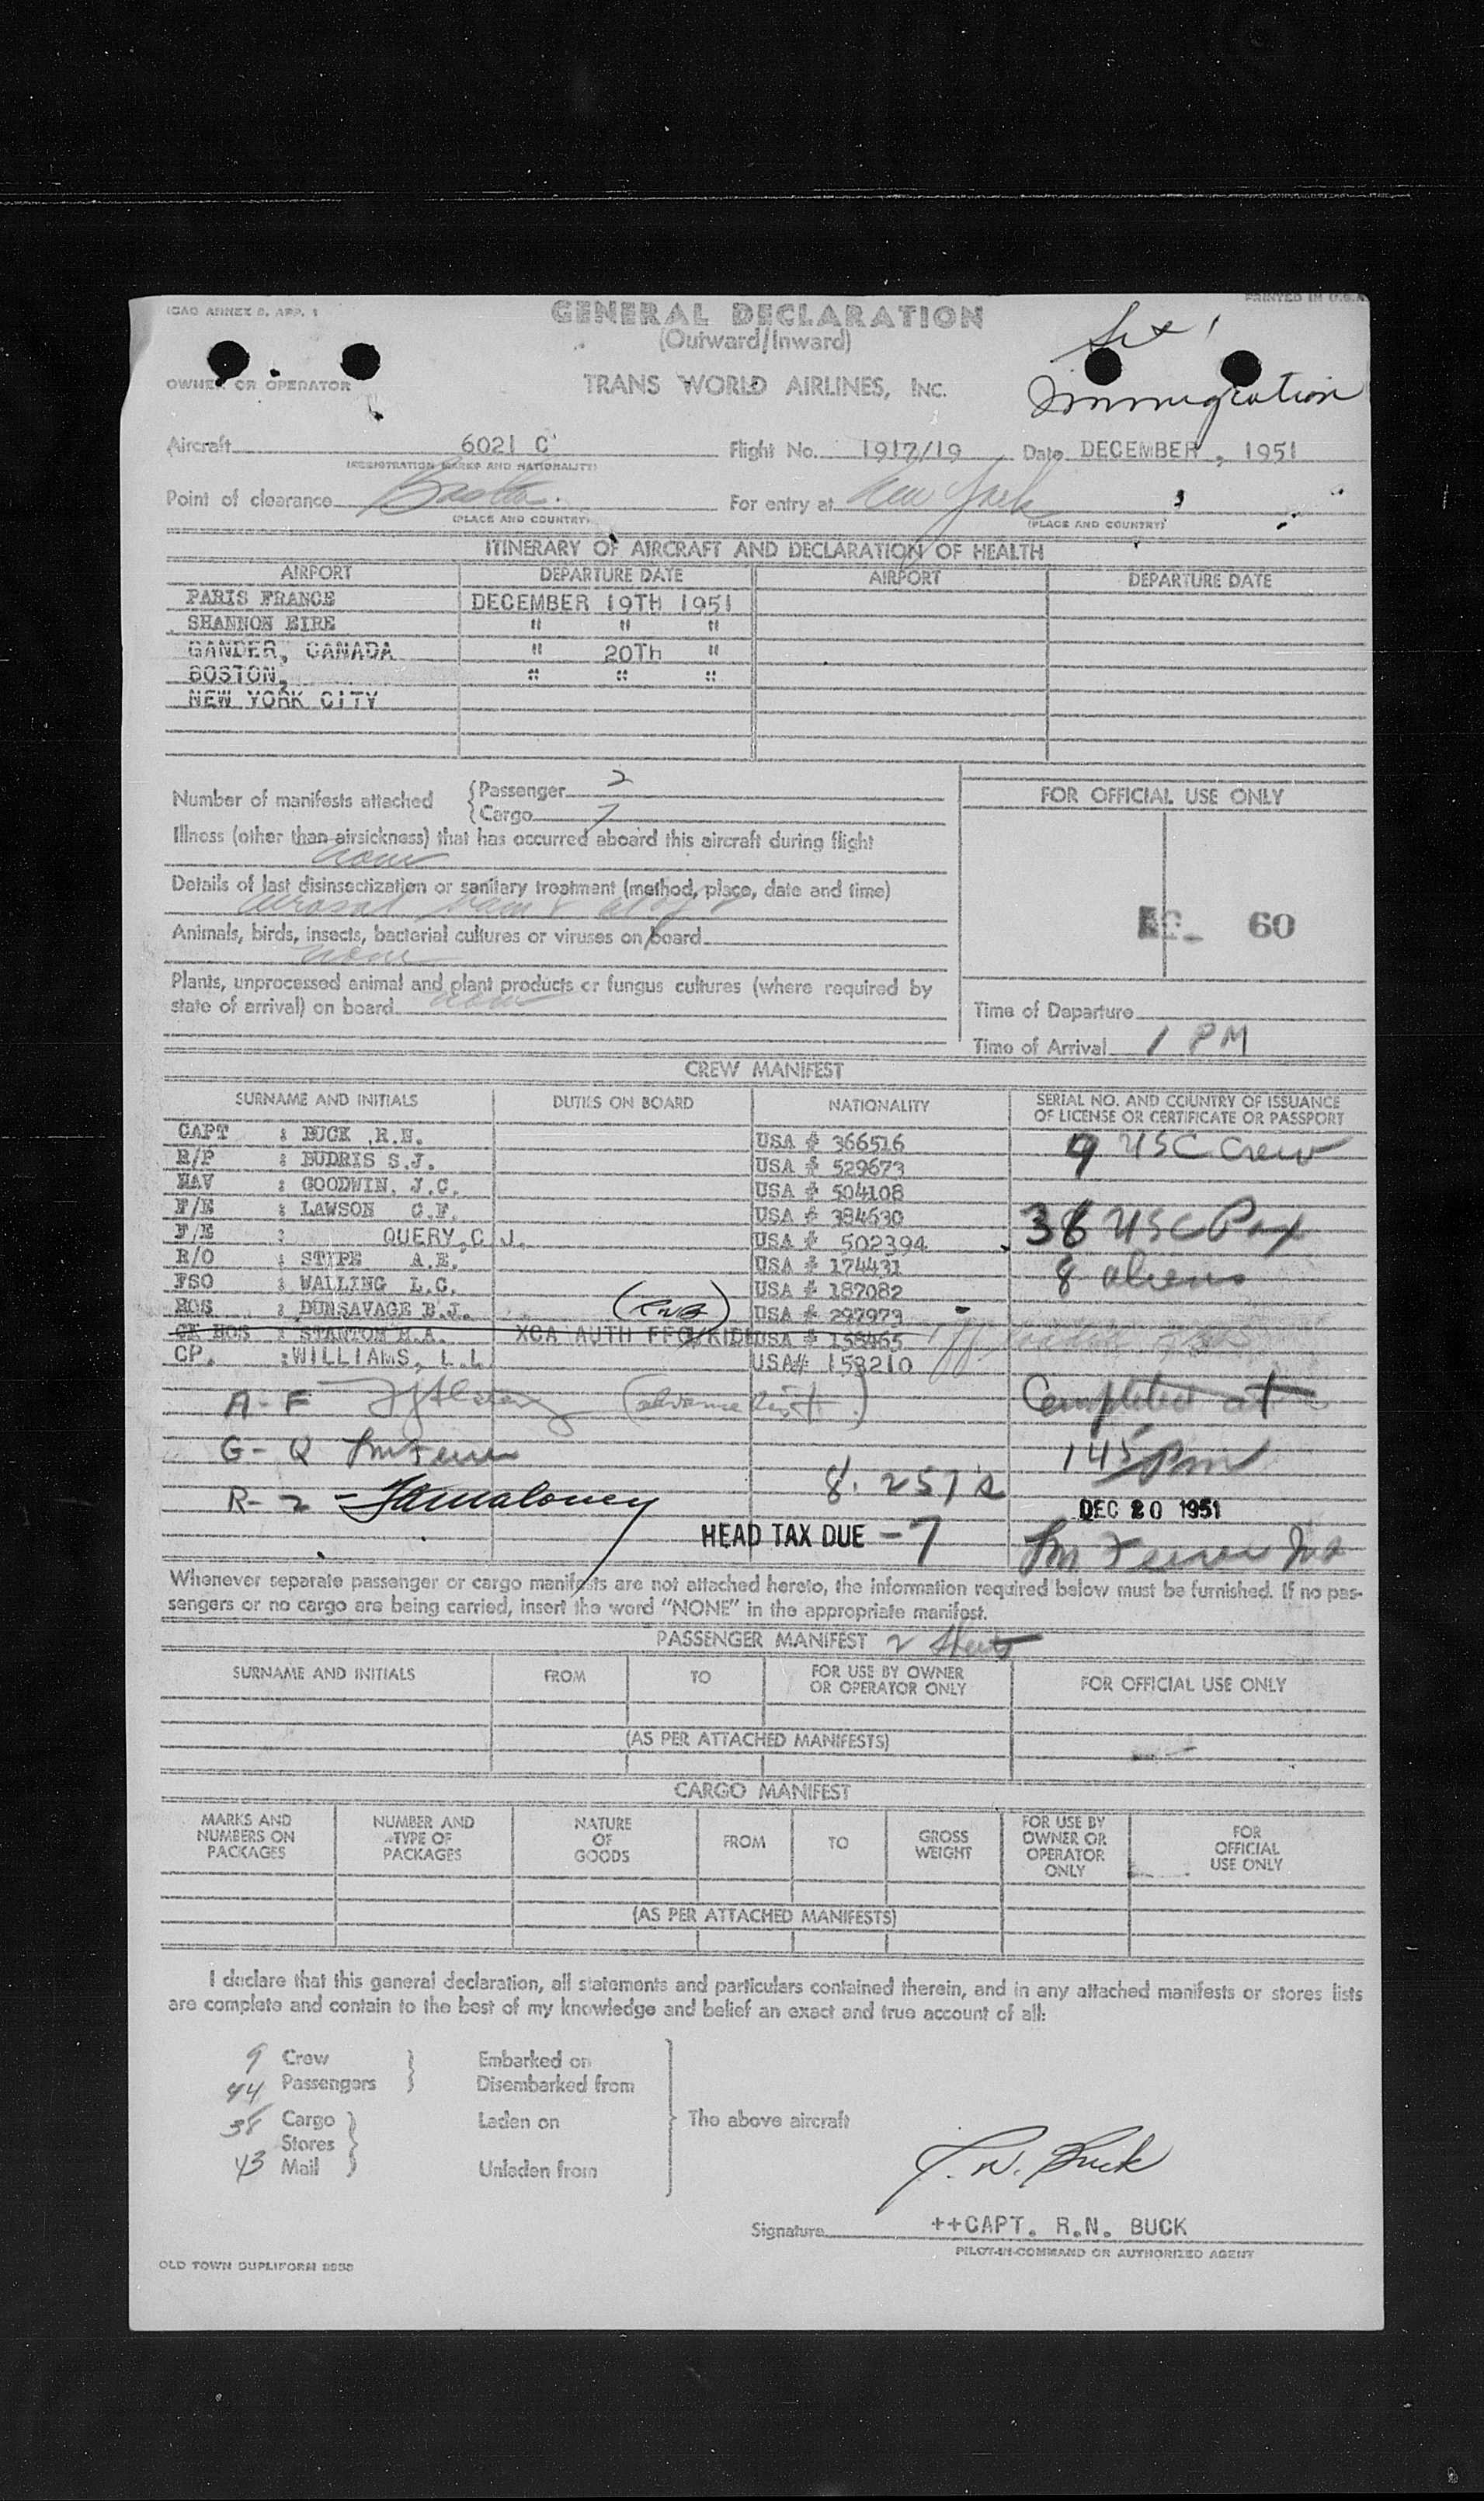 ICAO ANNEX 9, APP. 1
PRINTED IN U.S.A.
GENERAL DECLARATION
(Outward/Inward)
OWNER OR OPERATOR TRANS WORLD AIRLINES, INC.
Immigration
Aircraft 6021 C Flight No. 1917/19 Date DECEMBER , 1951
(REGISTRATION MARKS AND NATIONALITY)
Point of clearance Boston. For entry at New York
(PLACE AND COUNTRY) (PLACE AND COUNTRY)
ITINERARY OF AIRCRAFT AND DECLARATION OF HEALTH
AIRPORT DEPARTURE DATE AIRPORT DEPARTURE DATE
PARIS FRANCE DECEMBER 19TH 1951
SHANNON EIRE " " "
GANDER, CANADA " 20TH "
BOSTON, " " "
NEW YORK CITY
Number of manifests attached { Passenger 2
{ Cargo 7
FOR OFFICIAL USE ONLY
Illness (other than airsickness) that has occurred aboard this aircraft during flight
none
Details of last disinsectization or sanitary treatment (method, place, date and time)
60
Animals, birds, insects, bacterial cultures or viruses on board
none
Plants, unprocessed animal and plant products or fungus cultures (where required by
state of arrival) on board none
Time of Departure
Time of Arrival 1 PM
CREW MANIFEST
SURNAME AND INITIALS DUTIES ON BOARD NATIONALITY SERIAL NO. AND COUNTRY OF ISSUANCE
OF LICENSE OR CERTIFICATE OR PASSPORT
CAPT : BUCK .R.N. USA # 366516 9 USC Crew
R/P : BUDRIS S.J. USA # 529673
NAV : GOODWIN. J.C. USA # 504108
F/E : LAWSON C.F. USA # 384630 36 USC Pax
F/E : QUERY, C J. USA # 502394
R/O : STIPE A.E. USA # 174431 8 aliens
FSO : WALLING L.C. USA # 187082
HOS : DUNSAVAGE B.J. (RNB) USA # 297973
CK HOS : STANTON M.A. XCA AUTH USA # 158465
CP. :WILLIAMS, L L USA# 158210
A-F (advance list) Completed at
G-Q 145 Pm
R-Z - 8. 257
DEC 20 1951
HEAD TAX DUE - 7
Whenever separate passenger or cargo manifests are not attached hereto, the information required below must be furnished. If no pas-
sengers or no cargo are being carried, insert the word "NONE" in the appropriate manifest.
PASSENGER MANIFEST 2 sheets
SURNAME AND INITIALS FROM TO FOR USE BY OWNER
OR OPERATOR ONLY FOR OFFICIAL USE ONLY
(AS PER ATTACHED MANIFESTS)
CARGO MANIFEST
MARKS AND
NUMBERS ON
PACKAGES NUMBER AND
TYPE OF
PACKAGES NATURE
OF
GOODS FROM TO GROSS
WEIGHT FOR USE BY
OWNER OR
OPERATOR
ONLY FOR
OFFICIAL
USE ONLY
(AS PER ATTACHED MANIFESTS)
I declare that this general declaration, all statements and particulars contained therein, and in any attached manifests or stores lists
are complete and contain to the best of my knowledge and belief an exact and true account of all:
9 Crew } Embarked on
44 Passengers } Disembarked from
38 Cargo } Laden on The above aircraft
Stores
43 Mail } Unladen from
R. N. Buck
Signature ++CAPT. R.N. BUCK
PILOT-IN-COMMAND OR AUTHORIZED AGENT
OLD TOWN DUPLIFORM